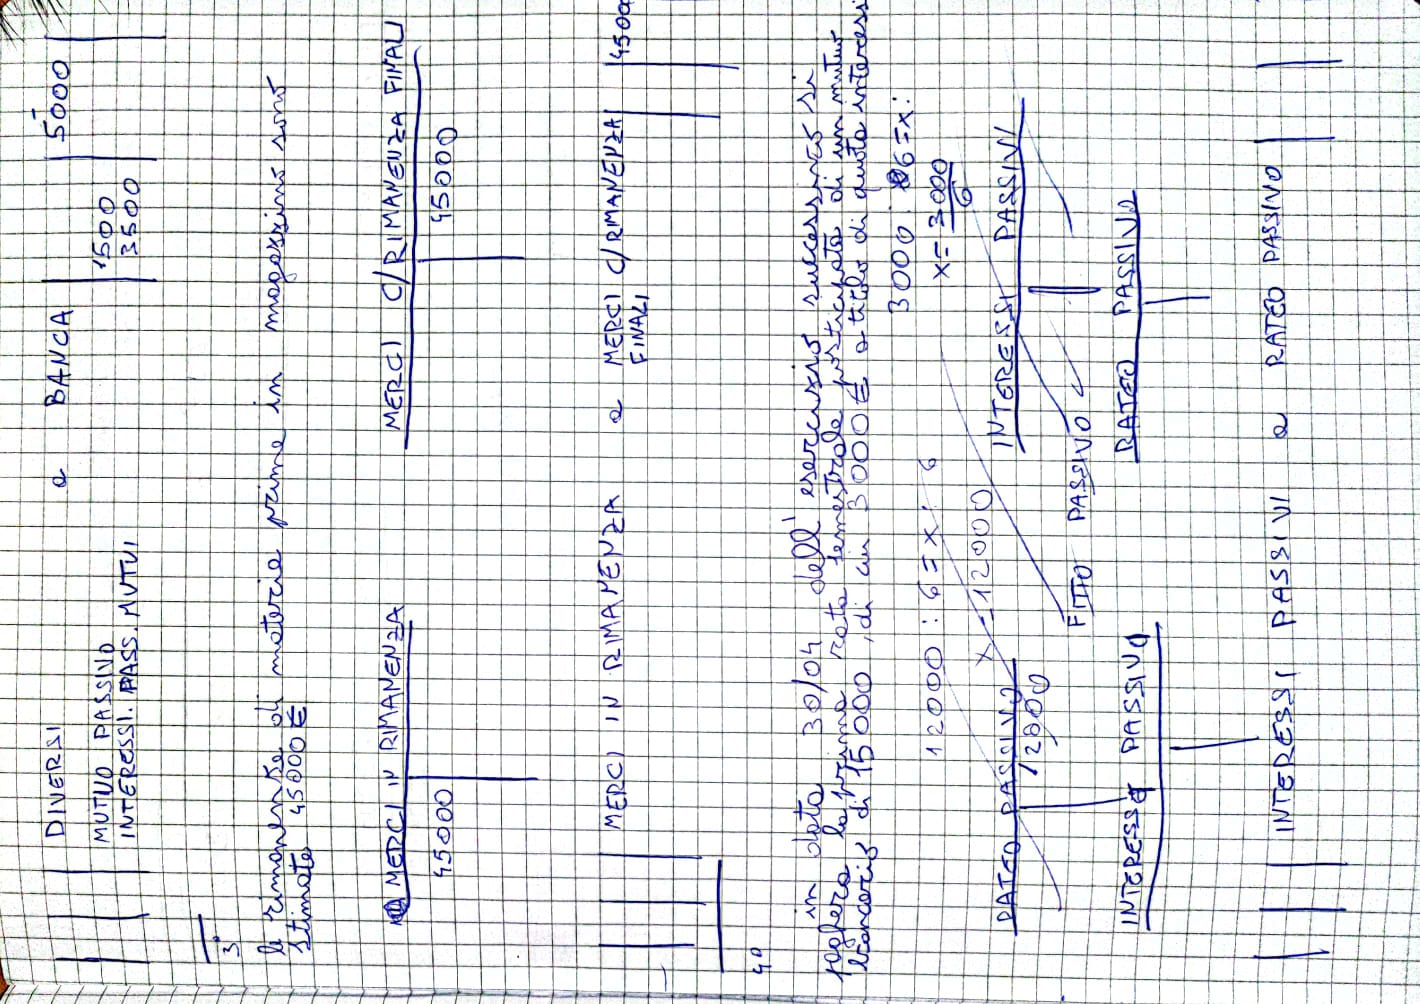 DIVERSI a BANCA 5000
MUTUO PASSIVO 1500
INTERESSI. PASS. MUTUI 3500
3°
le rimanenze di materie prime in magazzino sono
stimate 45000 €
MERCI IN RIMANENZA MERCI C/RIMANENZA FINALI
45000 45000
MERCI IN RIMANENZA a MERCI C/RIMANENZA 45000
FINALI
4°
in data 30/04 dell'esercizio successivo si
pagherà la prima rata semestrale posticipata di un mutuo
bancario di 15000, di cui 3000 € a titolo di quota interessi
12000 : 6 = x : 6 3000 : 6 = x :
x = 12000 x = 3000
6
RATEO PASSIVO INTERESSI PASSIVI
12000
FITTO PASSIVO
INTERESSE PASSIVO RATEO PASSIVO
INTERESSI PASSIVI a RATEO PASSIVO